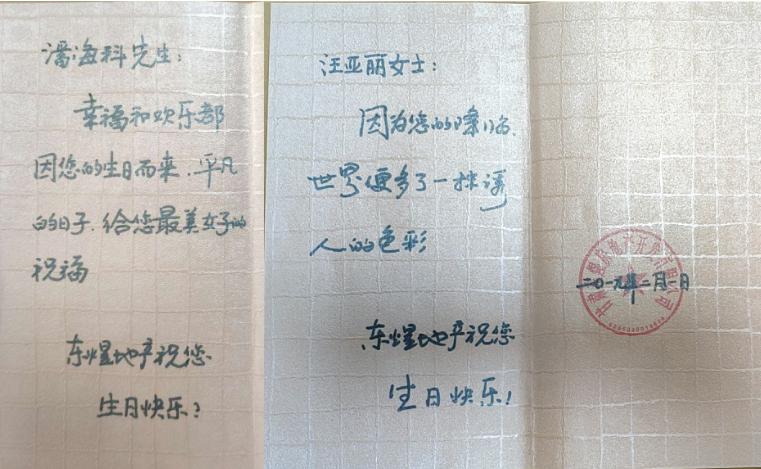 潘海科先生：
幸福和欢乐都
因您的生日而来．平凡
的日子．给您最美好的
祝福
东煌地产祝您
生日快乐？
汪亚丽女士：
因为您的降临．
世界便多了一抹诱
人的色彩
东煌地产祝您
生日快乐！
二〇一九年二月一日